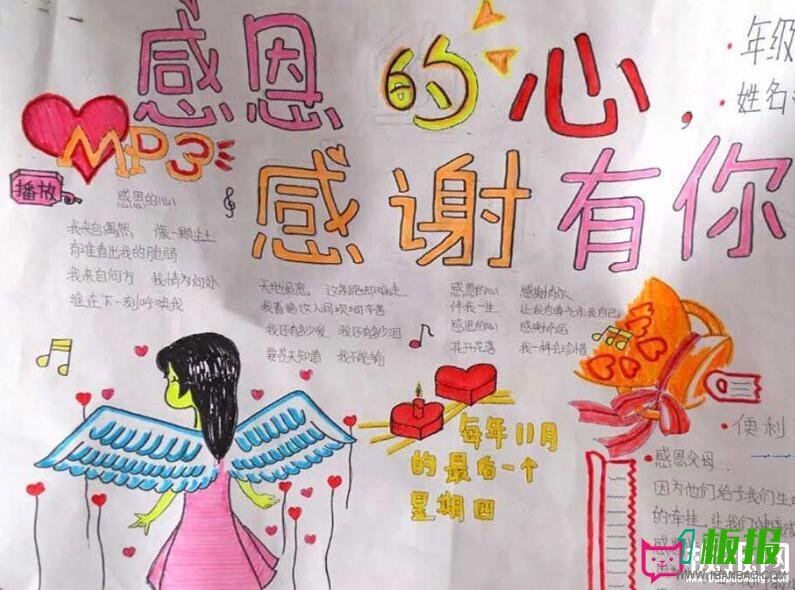 感恩的心,
感谢有你
年级
姓名:
MP3
播放
感恩的心
我来自偶然 像一颗尘土
有谁看出我的脆弱
我来自何方 我情为何处
谁在下一刻呼唤我
天地虽宽 这条路却难走
我看遍这人间坎坷辛苦
我还有多少爱 我还有多少泪
要苍天知道 我不能输
感恩的心 感谢有你
伴我一生 让我有勇气作我自己
感恩的心 感谢命运
花开花落 我一样会珍惜
每年11月
的最后一个
星期四
便利
感恩父母
因为他们给予我们生
的牵挂,让我们
板报